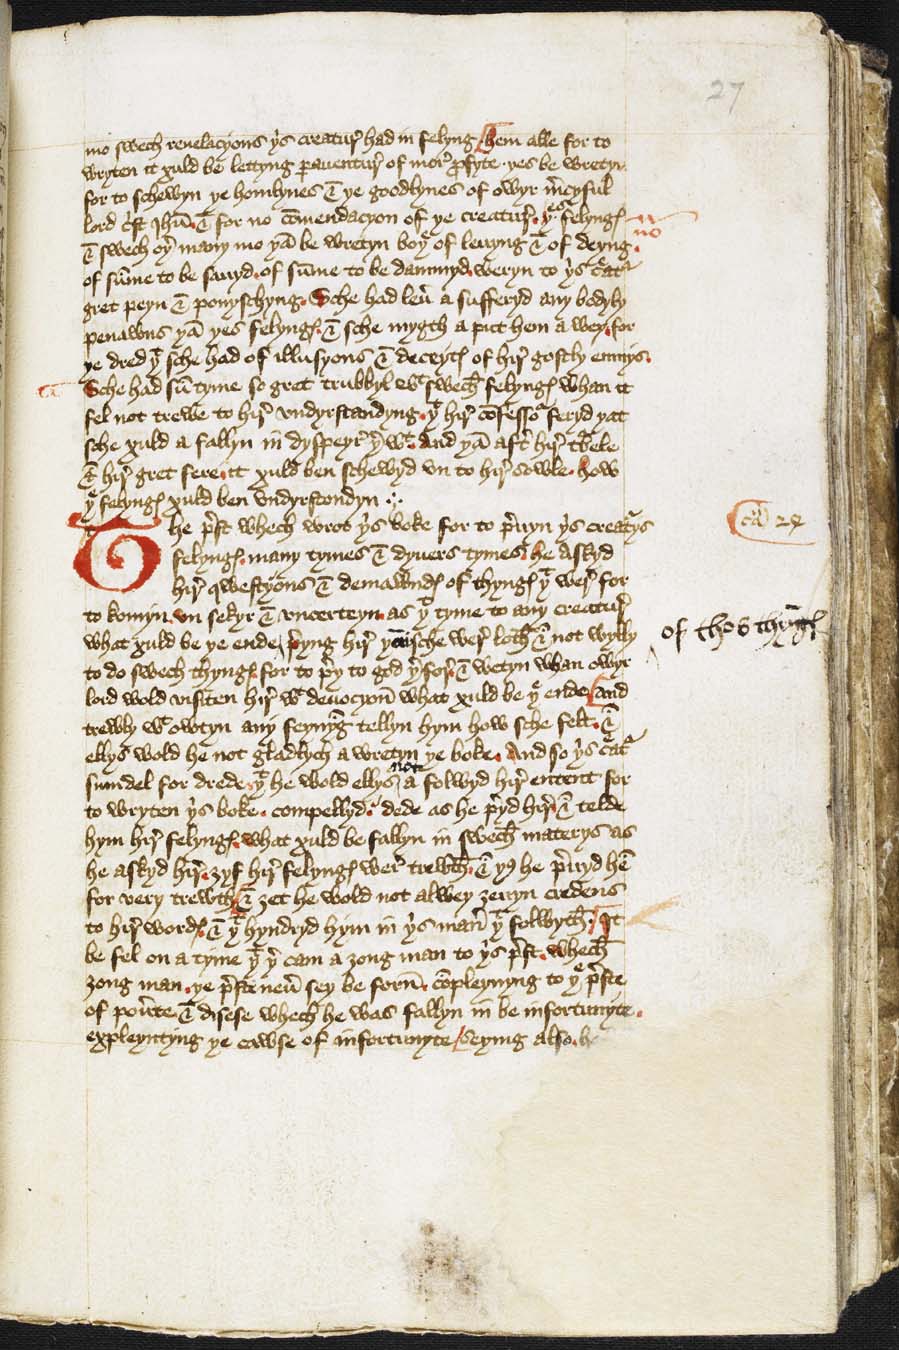 27
mo swech reuelacyons yͥs creatur̉ had in felyng hem alle for to
wryten it xuld be lettyng ꝑauentur̉ of mor̉ ꝓfyte. yes be wretyn
for to schewyn ye homlynes & ye goodlynes of owyr m̉cyful
lord c̉st Ihū. & for no cōmendacyon of ye creatur̉. yͤs felyngꝭ
& swech oyͬ many mo yā be wretyn boyͤ of leuyng & of deyng.
no
of sūme to be sauyd. of sūme to be dammyd. weryn to yͥs c̉atᷣ
gret peyn & ponyschyng. Sche had leủ a sufferyd any bodyly
penawns yā yes felyngꝭ. & sche mygth a put hem a wey. for
ye dred yͭ sche had of illusyons & deceytꝭ of hir̉ gostly enmys.
Sche had sūtyme so gret trubbyl wͭ swech felyngꝭ whan it
fel not trewe to hir̉ vndyrstandyng. yͭ hir̉ cōfessoᷣ feryd yat
sche xuld a fallyn in dyspeyr̉ yͬ wͭ. And yā aft̉ hir̉ t̉bele
& hir̉ gret fere. it xuld ben schewyd vn to hir̉ sowle. how
yͤ felyngꝭ xuld ben vndyrstondyn
The p̉st whech wrot yͥs boke for to p̉uyn yͥs creatᷣys
ca 24
felyngꝭ. many tymes & dyuers tymes he askyd
hir̉ qwestyons & demawndꝭ of thyngꝭ yͭ wer̉ for
to komyn. vn sekyr & vncerteyn. as yͭ tyme to any creatur̉
what xuld be ye ende, p̉yng hir̉ yow sche wer̉ loth & not wylly
of thos thyngꝭ
to do swech thyngꝭ for to p̉y to god yͬfor̉. & wetyn whan owyr
lord wold visiten hir̉ wͭ deuocyon̄ what xuld be yͤ ende and
trewly wͭ owtyn any feynyg̉ tellyn hym how sche felt. &
ellys wold he not gladlych a wretyn ye boke. And so yͥs c̉atᷣ
sumdel for drede. yͭ he wold ellys not a folwyd hir̉ entent for
to wryten yͥs boke. compellyd. dede as he p̉yd hir̉. & telde
hym hir̉ felyngꝭ. what xuld be fallyn in swech materys as
he askyd hir̉. ȝyf hir̉ felyngꝭ wer̉ trewth. & yꝰ he p̉uyd hē
for very trewth. & ȝet he wold not alwey ȝeuyn credens
to hir̉ wordꝭ. & yͭ hyndryd hym in yͥs man̉ yͭ folwyth. It
be fel on a tyme yͭ yͬ cam a ȝong man to yͥs p̉st. whech
ȝong man. ye p̉st neủ sey be forn̄. cōpleynyng to yͤ p̉ste
of poủte & disese whech he was fallyn in be infortunyte.
expleyntyng ye cawse of infortunyte Seying also. he